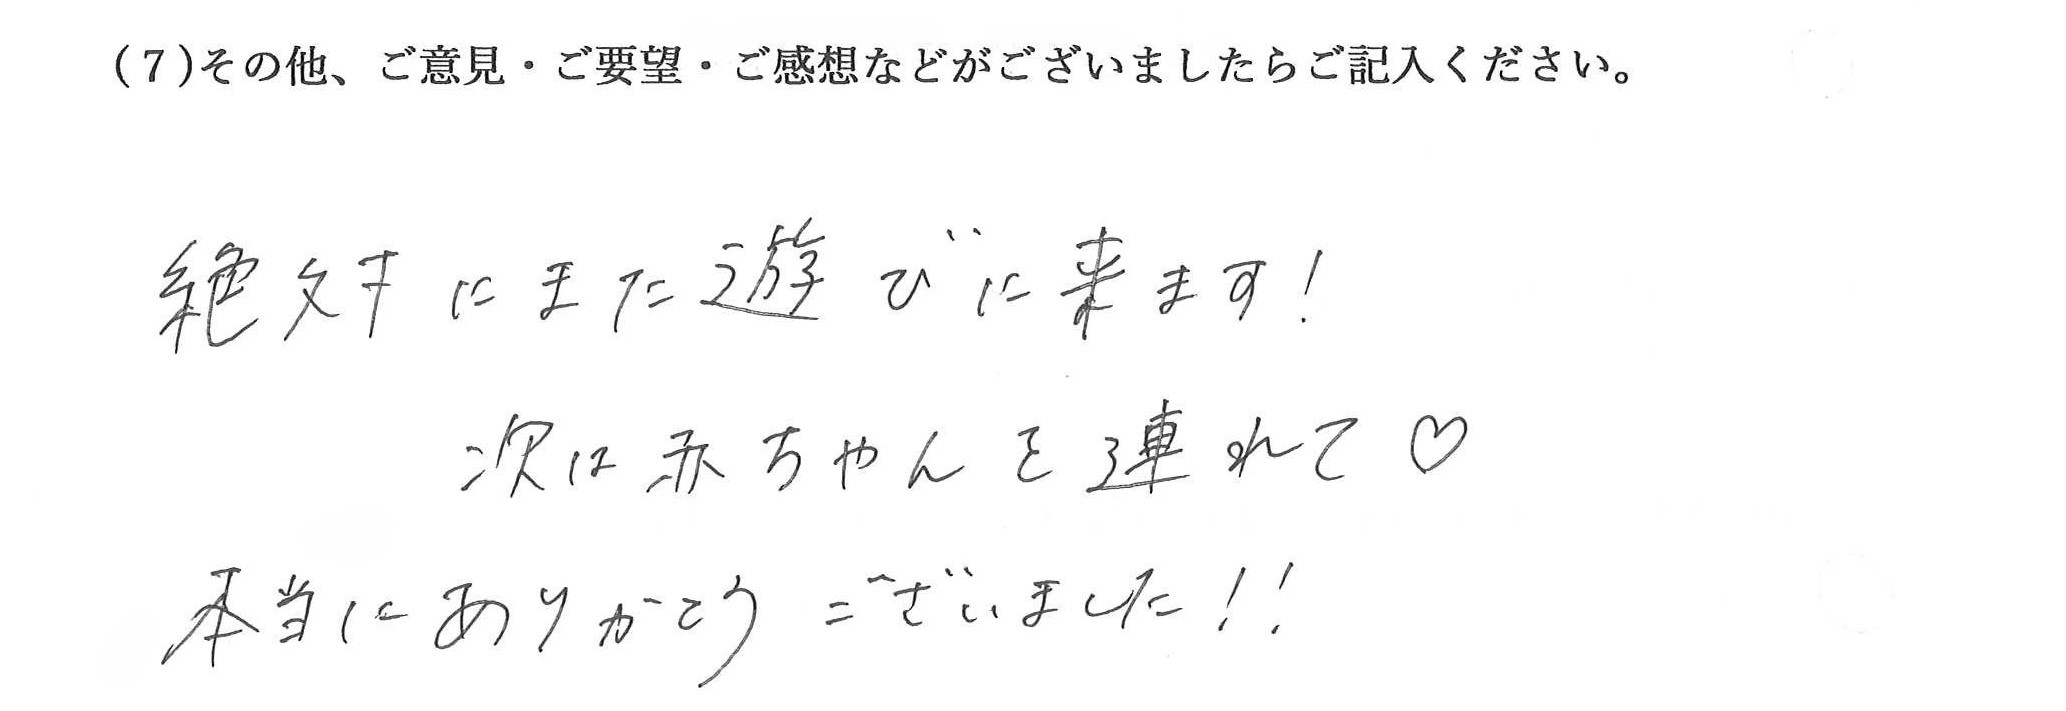 (7)その他、ご意見・ご要望・ご感想などがございましたらご記入ください。
絶対にまた遊びに来ます!
次は赤ちゃんを連れて♡
本当にありがとうございました!!